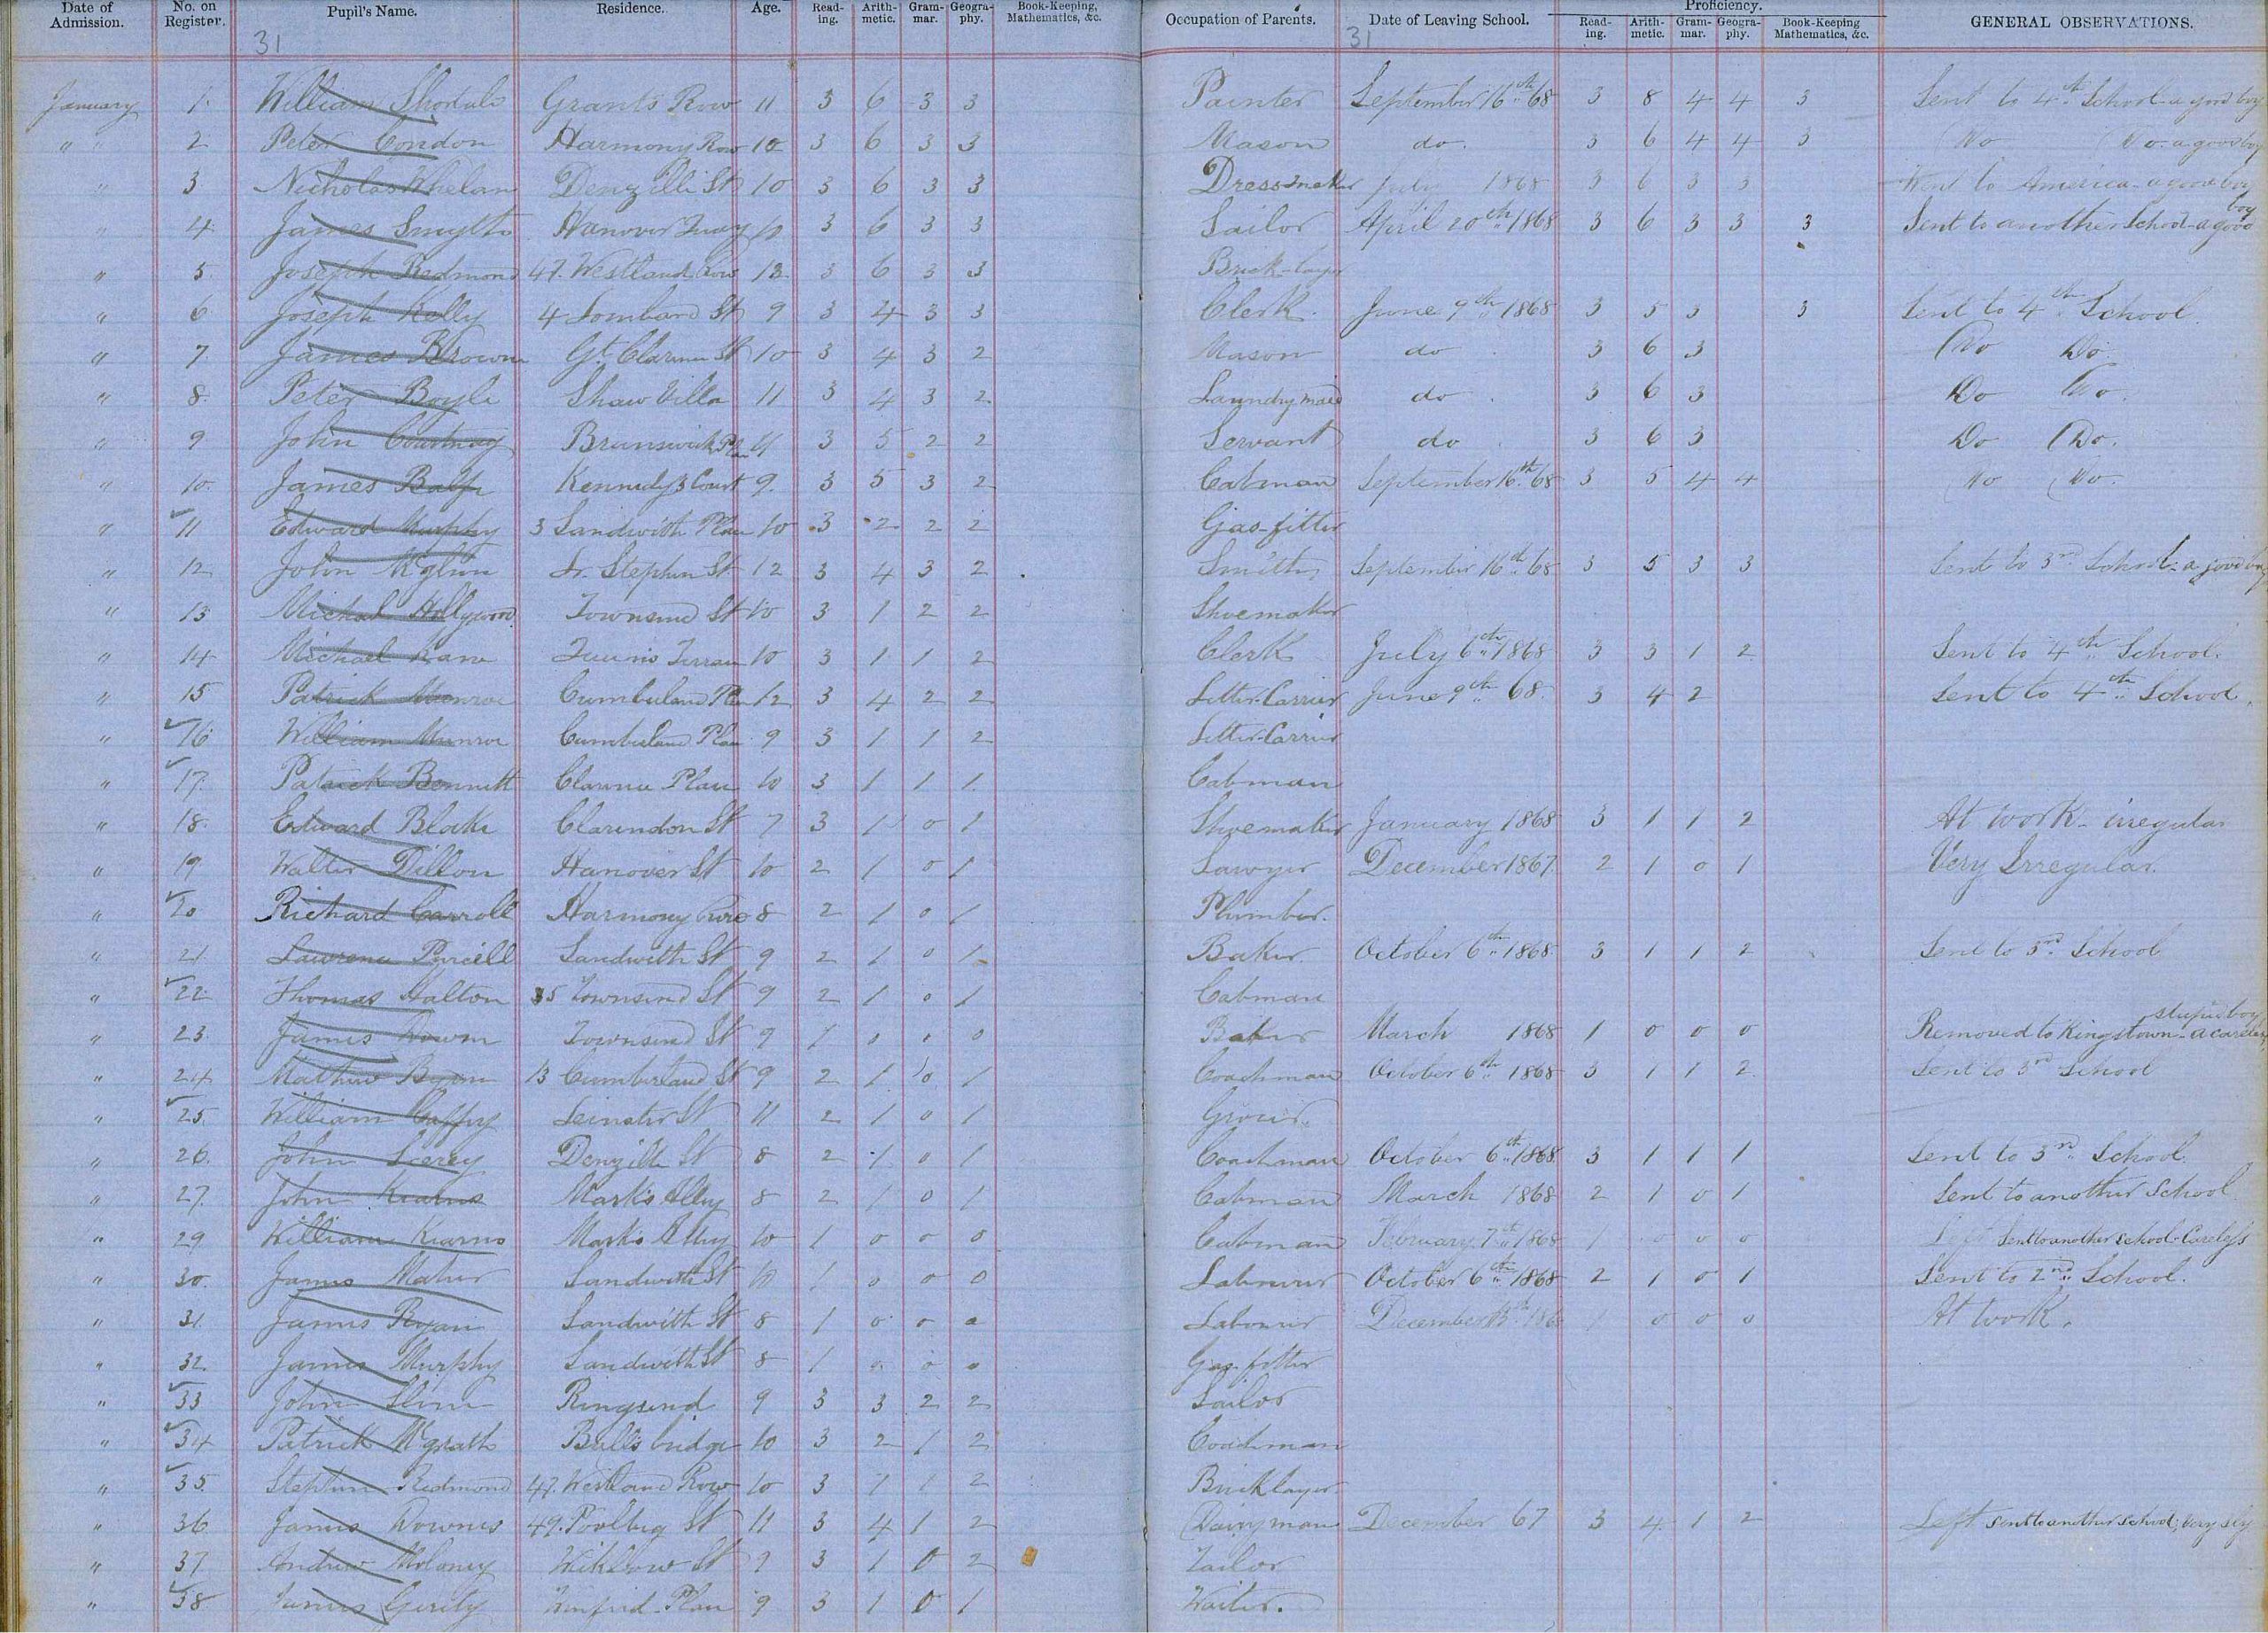 Date of Admission. No. on Register. Pupil's Name. Residence. Age. Read-ing. Arith-metic. Gram-mar. Geogra-phy. Book-Keeping, Mathematics, &c. Occupation of Parents. Date of Leaving School. Proficiency. Read-ing. Arith-metic. Gram-mar. Geogra-phy. Book-Keeping Mathematics, &c. GENERAL OBSERVATIONS.
31 31
January 1. William Grants Row 11 3 6 3 3 Painter September 16th 68 3 8 4 4 3 Sent to 4th School a good boy
" " 2 Peter Condon Harmony Row 10 3 6 3 3 Mason do. 3 6 4 4 3 Do Do. a good boy
" 3 Nicholas Whelan Denzille St 10 3 6 3 3 Dressmaker July 1868 3 6 3 3 Went to America a good boy
" 4 James Smyth Hanover Quay 3 6 3 3 Sailor April 20th 1868 3 6 3 3 3 Sent to another School a good boy
" 5 Joseph Redmond 47. Westland Row 13 3 6 3 3 Brick-layer
" 6 Joseph Kelly 4 Lombard St 9 3 4 3 3 Clerk. June 9th 1868 3 5 3 3 Sent to 4th School.
" 7 James Brown Gt. Clarence St 10 3 4 3 2 Mason do 3 6 3 Do Do.
" 8 Peter Boyle Shaw Villa 11 3 4 3 2 Laundry maid do 3 6 3 Do Do.
" 9 John Courtnay Brunswick 3 5 2 2 Servant do 3 6 3 Do Do.
" 10. James Kennedys Court 9. 3 5 3 2 Cabman September 16th 68 3 5 4 4 Do Do.
" 11 Edward Murphy 3 Sandwith Place 10 3 2 2 2 Gas-fitter
" 12 John McGlinn St 12 3 4 3 2 Smith September 16th 68 3 5 3 3 Sent to 3rd School. a good boy
" 13 Michael Hollywood Townsend St 10 3 1 2 2 Shoemaker
" 14 Michael Kane Terrace 10 3 1 1 2 Clerk July 6th 1868 3 3 1 2 Sent to 4th School.
" 15 Patrick Munroe Cumberland Place 12 3 4 2 2 Letter-Carrier June 9th 68. 3 4 2 Sent to 4th School.
" 16 William Munroe Cumberland Place 9 3 1 1 2 Letter-Carrier
" 17. Patrick Bennett Clarence Place 10 3 1 1 1. Cabman
" 18. Edward Blake Clarendon St 7 3 1 0 1 Shoemaker January 1868 3 1 1 2 At work - irregular
" 19 Walter Dillon Hanover St 10 2 1 0 1 Sawyer December 1867. 2 1 0 1 Very Irregular.
" 20 Richard Carroll Harmony 8 2 1 0 1 Plumber.
" 21 Lawrence Purcell Sandwith St 9 2 1 0 1 Baker October 6th 1868. 3 1 1 2 Sent to 3rd School
" 22 Thomas Halton 35 Townsend St 9 2 1 0 1 Cabman
" 23. James Townsend St 9 1 0 0 0 Baker March 1868 1 0 0 0 Removed to Kingstown - a careless stupid boy
" 24 Mathew Byrn 13 Cumberland St 9 2 1 0 1 Coachman October 6th 1868 3 1 1 2. Sent to 3rd School
" 25. William Caffry Leinster St 11 2 1 0 1 Grocer.
" 26. John Denzille St 8 2 1 0 1 Coachman October 6th 1868. 3 1 1 1 Sent to 3rd School.
" 27. John Kearns Mark's Alley 8 2 1 0 1 Cabman March 1868 2 1 0 1 Sent to another School
" 29. William Kearns Mark's Alley 10 1 0 0 0 Cabman February 7th 1868 1 0 0 0 Left Sent to another school - Careless
" 30. James Maher Sandwith St 10 1 0 0 0 Labourer October 6th 1868 2 1 0 1 Sent to 2nd School.
" 31. James Ryan Sandwith St 8 1 0 0 0 Labourer December 1 0 0 0 At work.
" 32. James Murphy Sandwith St 8 1 0 0 0 Gas-fitter
" 33 John Ringsend 9 3 3 2 2 Sailor
" 34 Patrick McGrath Ball's bridge 10 3 2 1 2 Coachman
" 35. Stephen Redmond 47. Westland Row 10 3 1 1 2 Bricklayer.
" 36. James Downes 49. Poolbeg St 11 3 4 1 2 Dairyman December 67 3 4 1 2 Left sent to another school; very sly
" 37 Andrew Moloney Wicklow St 9 3 1 0 2 Tailor
" 38 James Gerity Place 9 3 1 0 1 Waiter.